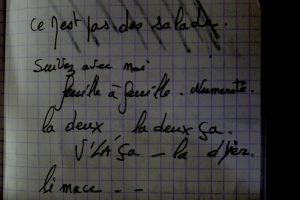 ce n'est pas des salades.
Suivez avec moi
feuille à feuille. Numéroté.
la deux, la deux ça.
V'LÀ ça – la
limace - -